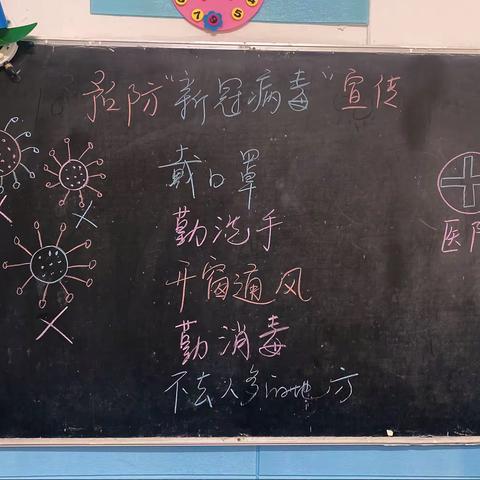 预防“新冠病毒”宣传
戴口罩
勤洗手
开窗通风
勤消毒
不去人多的地方
医院